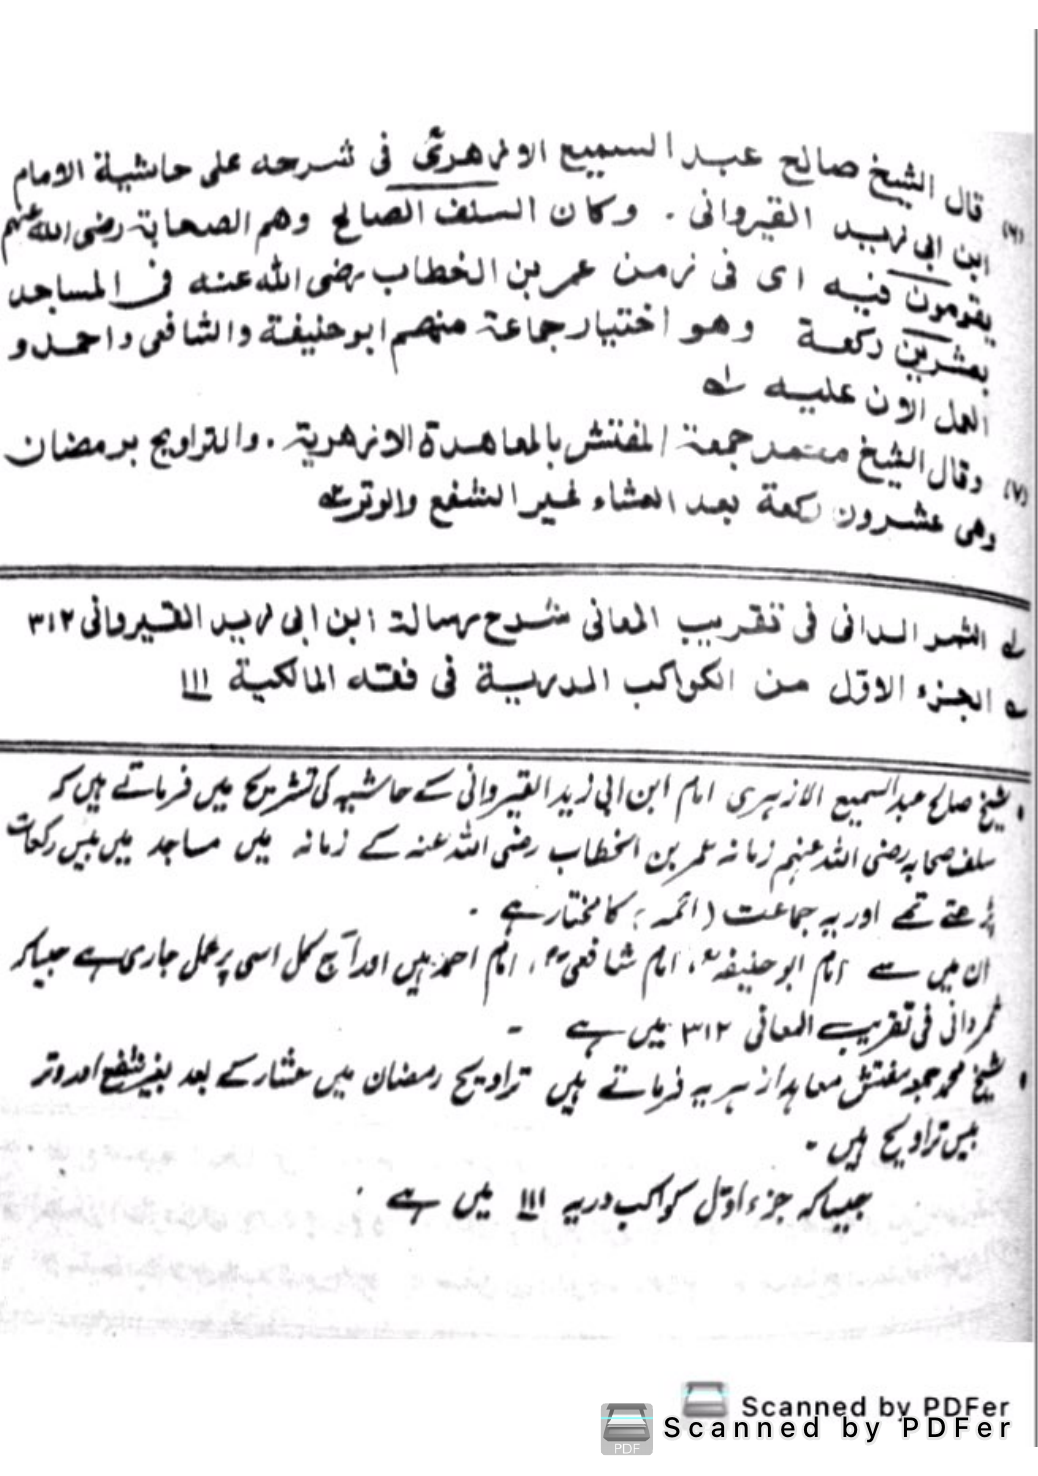 (٦) قال الشيخ صالح عبد السميع الازهرى فى شرحه على حاشية الامام
ابن ابى زيد القيروانى . وكان السلف الصالح وهم الصحابة رضى الله عنهم
يقومون فيه اى فى زمن عمر بن الخطاب رضى الله عنه فى المساجد
بعشرين ركعة وهو اختيار جماعة منهم ابو حنيفة والشافعى واحمد و
العمل الآن عليه لـه
(٧) وقال الشيخ محمد جمعة المفتش بالمعاهدة الازهرية . والتراويح برمضان
وهى عشرون ركعة بعد العشاء غير الشفع والوتر
الثمر الدانى فى تقريب المعانى شرح رسالة ابن ابى زيد القيروانى ٣١٢
الجزء الاوّل من الكواكب الدرية فى فقه المالكية ١١١
شیخ صالح عبدالسمیع الازہری امام ابن ابی زید القیروانی کے حاشیہ کی تشریح میں فرماتے ہیں کہ
سلف صحابہ رضی اللہ عنہم زمانہ عمر بن الخطاب رضی اللہ عنہ کے زمانہ میں مساجد میں بیس رکعات
پڑھتے تھے اور یہ جماعت (ائمہ) کا مختار ہے ۔
ان میں سے امام ابو حنیفہؒ، امام شافعیؒ، امام احمد ہیں اور آج کل اسی پر عمل جاری ہے جیسا کہ
ثمر دانی فی تقریب المعانی ٣١٢ میں ہے ۔
شیخ محمد جمعہ مفتش معاہد ازہریہ فرماتے ہیں تراویح رمضان میں عشاء کے بعد بغیر شفع اور وتر
بیس تراویح ہیں ۔
جیسا کہ جزء اوّل کواکب دریہ ١١١ میں ہے ۔
Scanned by PDFer
Scanned by PDFer
PDF